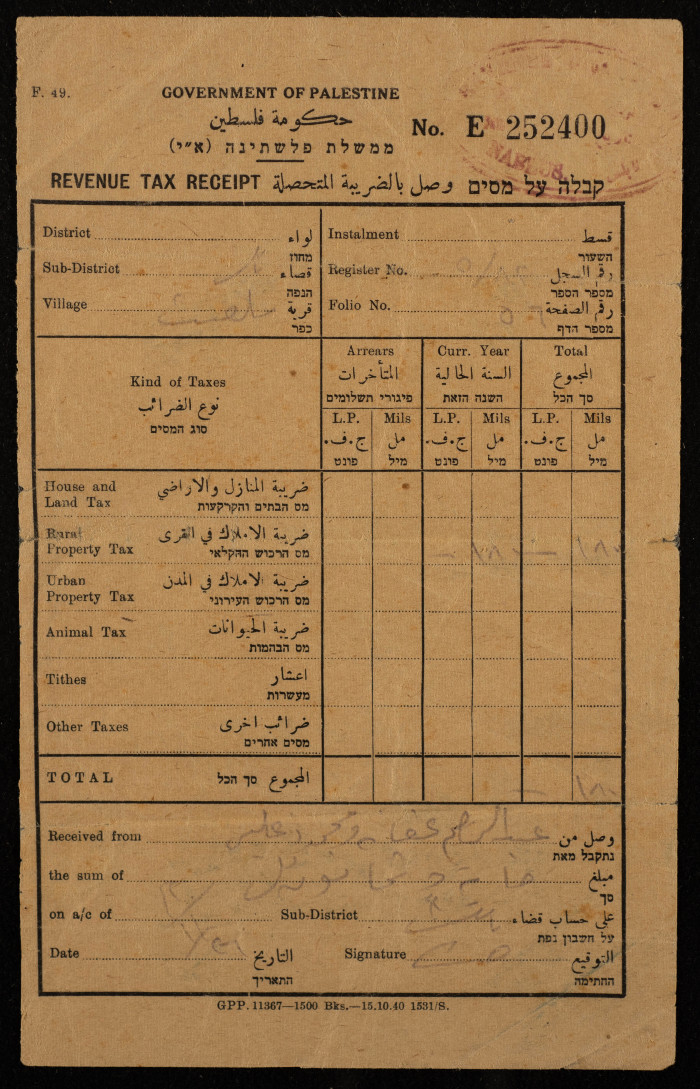 F. 49.
GOVERNMENT OF PALESTINE
حكومة فلسطين
ממשלת פלשתינה (א״י)
No. E 252400
NABLUS
REVENUE TAX RECEIPT وصل بالضريبة المتحصلة קבלה על מסים
District لواء
מחוז
Sub-District قضاء
הנפה
Village قرية
כפר
Instalment قسط
השעור
Register No. رقم السجل
מספר הספר
Folio No. ٥٦ رقم الصفحة
מספר הדף
Kind of Taxes
نوع الضرائب
סוג המסים
Arrears
المتأخرات
פיגורי תשלומים
Curr. Year
السنة الحالية
השנה הזאת
Total
المجموع
סך הכל
L.P. Mils L.P. Mils L.P. Mils
ج.ف. مل ج.ف. مل ج.ف. مل
פונט מיל פונט מיל פונט מיל
House and Land Tax ضريبة المنازل والاراضي
מס הבתים והקרקעות
Rural Property Tax ضريبة الاملاك في القرى
מס הרכוש החקלאי
١٨٠ ١٨٠
Urban Property Tax ضريبة الاملاك في المدن
מס הרכוש העירוני
Animal Tax ضريبة الحيوانات
מס הבהמות
Tithes اعشار
מעשרות
Other Taxes ضرائب اخرى
מסים אחרים
TOTAL סך הכל المجموع
١٨٠
Received from وصل من
נתקבל מאת
the sum of مبلغ
סך
on a/c of Sub-District على حساب قضاء
על חשבון נפת
Date التاريخ
התאריך
Signature التوقيع
החתימה
GPP. 11367—1500 Bks.—15.10.40 1531/S.